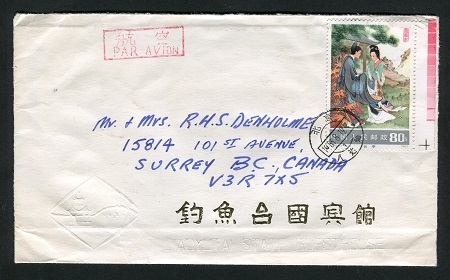 航空
PAR AVION
80分
Mr. & Mrs. R.H.S. DENHOLME
15814 101ST AVENUE,
SURREY B.C., CANADA
V3R 7X5
釣魚台國宾館